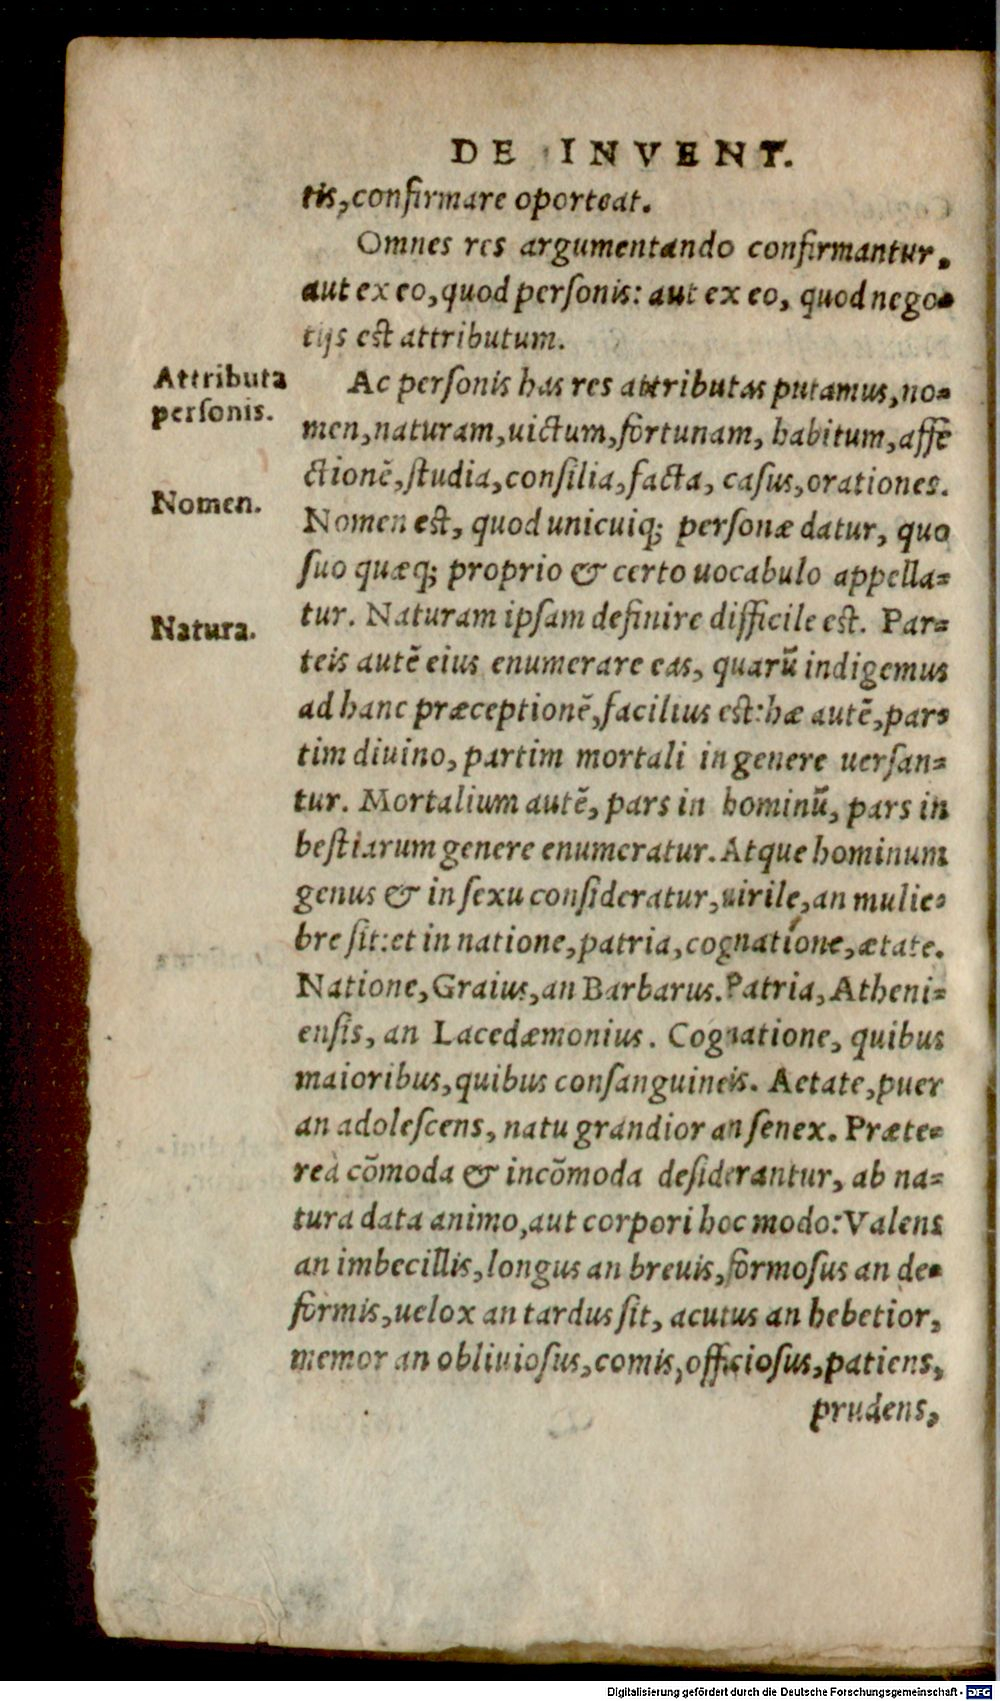 DE INVENT.
tis, confirmare oporteat.
Omnes res argumentando confirmantur,
aut ex eo, quod personis: aut ex eo, quod nego-
tijs est attributum.
Attributa
personis.
Ac personis has res attributas putamus, no-
men, naturam, uictum, fortunam, habitum, affe
ctionē, studia, consilia, facta, casus, orationes.
Nomen.
Nomen est, quod unicuiq; personæ datur, quo
suo quæq; proprio & certo uocabulo appella-
Natura.
tur. Naturam ipsam definire difficile est. Par-
teis autē eius enumerare eas, quarū indigemus
ad hanc præceptionē, facilius est: hæ autē, par-
tim diuino, partim mortali in genere uersan-
tur. Mortalium autē, pars in hominū, pars in
bestiarum genere enumeratur. Atque hominum
genus & in sexu consideratur, uirile, an mulie-
bre sit: et in natione, patria, cognatione, ætate.
Natione, Graius, an Barbarus. Patria, Atheni-
ensis, an Lacedæmonius. Cognatione, quibus
maioribus, quibus consanguineis. Aetate, puer
an adolescens, natu grandior an senex. Præte-
reà cōmoda & incōmoda desiderantur, ab na-
tura data animo, aut corpori hoc modo: Valens
an imbecillis, longus an breuis, formosus an de-
formis, uelox an tardus sit, acutus an hebetior,
memor an obliuiosus, comis, officiosus, patiens,
prudens,
Digitalisierung gefördert durch die Deutsche Forschungsgemeinschaft - DFG